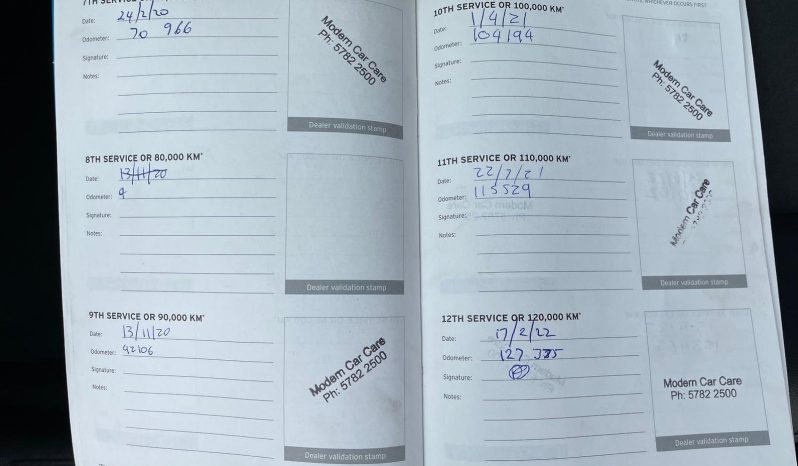 Date: 24/2/20
Odometer: 70 966
Signature:
Notes:
Modern Car Care
Ph: 5782 2500
Dealer validation stamp
8TH SERVICE OR 80,000 KM*
Date: 13/11/20
Odometer: 9
Signature:
Notes:
Dealer validation stamp
9TH SERVICE OR 90,000 KM*
Date: 13/11/20
Odometer: 92106
Signature:
Notes:
Modern Car Care
Ph: 5782 2500
Dealer validation stamp
WHICHEVER OCCURS FIRST
10TH SERVICE OR 100,000 KM*
Date: 1/4/21
Odometer: 104194
Signature:
Notes:
Modern Car Care
Ph: 5782 2500
Dealer validation stamp
11TH SERVICE OR 110,000 KM*
Date: 22/7/21
Odometer: 115529
Signature:
Notes:
Modern Car Care
Dealer validation stamp
12TH SERVICE OR 120,000 KM*
Date: 17/2/22
Odometer: 127
Signature:
Notes:
Modern Car Care
Ph: 5782 2500
Dealer validation stamp